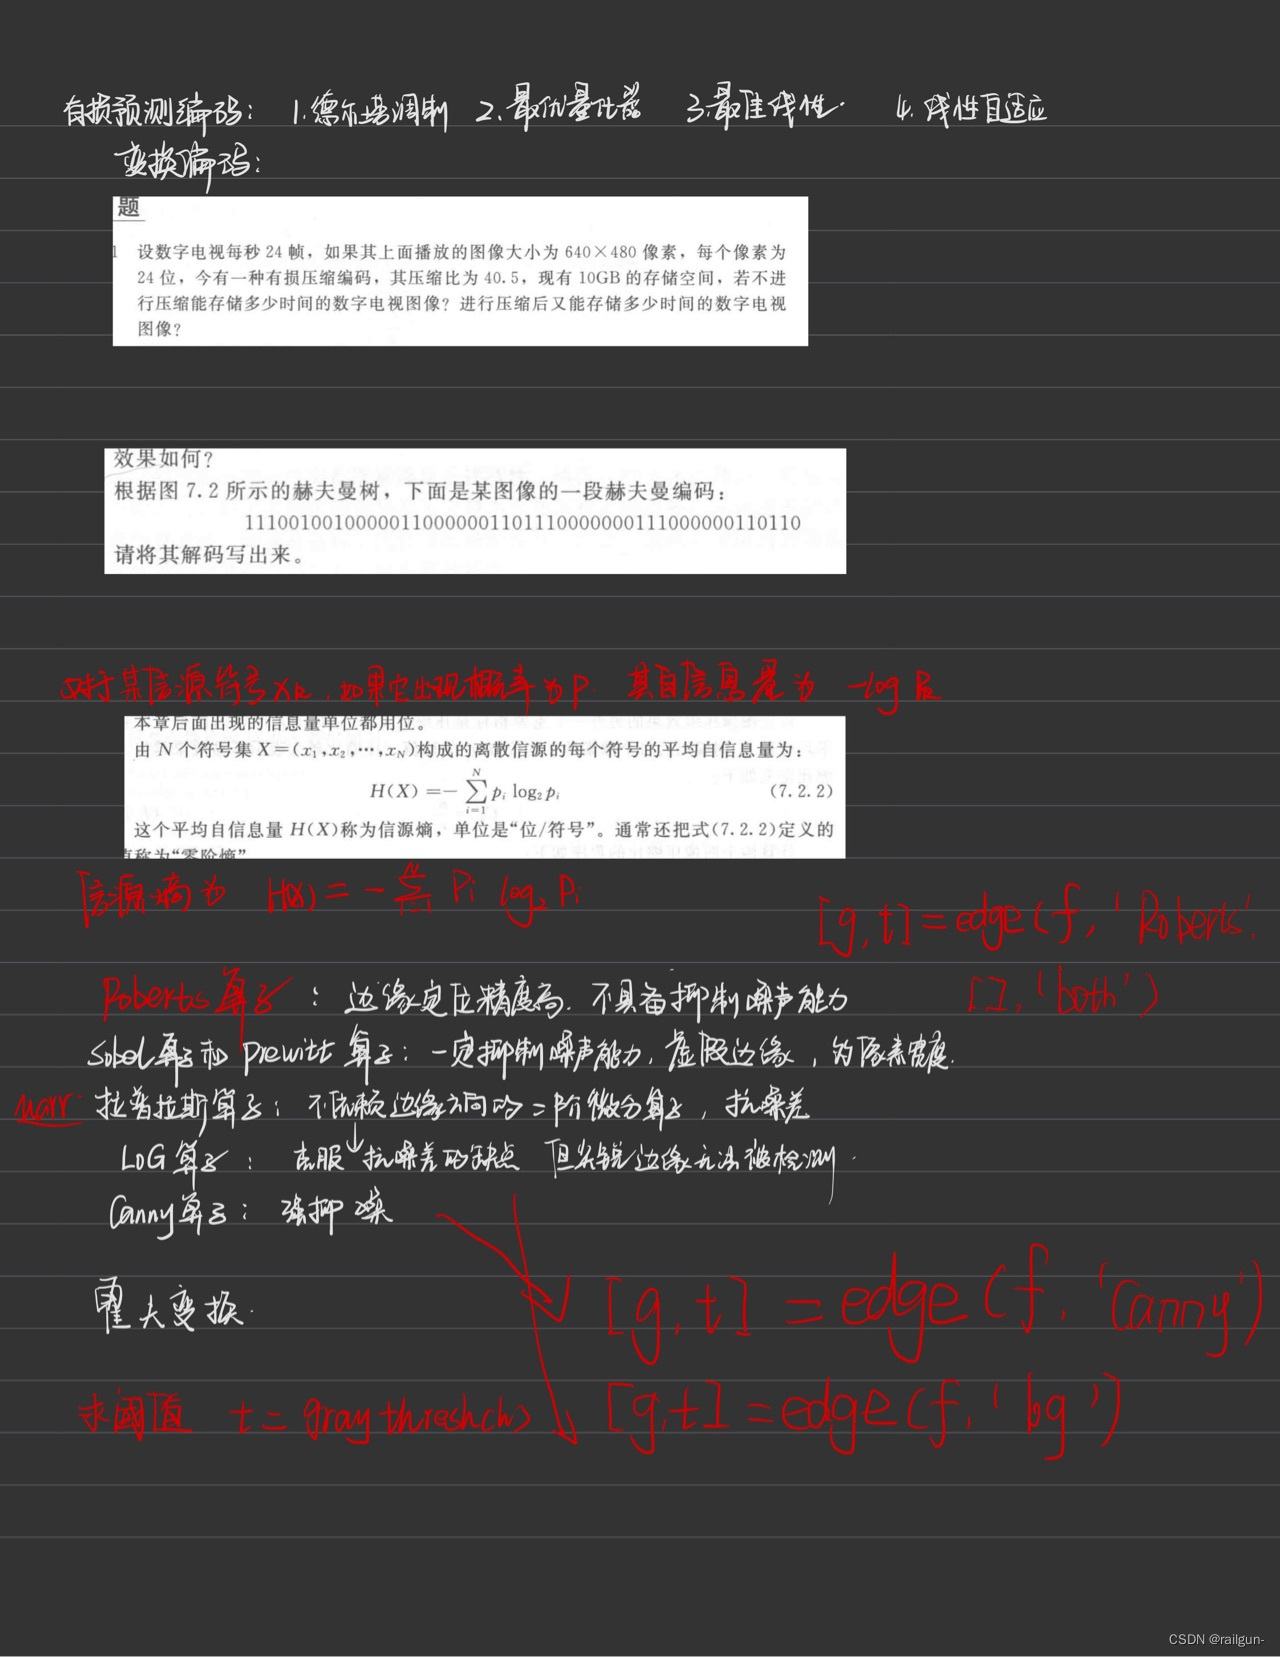 有损预测编码： 1.德尔塔调制 2.最优量化器 3.最佳线性. 4.线性自适应
变换编码：
题
1 设数字电视每秒 24 帧，如果其上面播放的图像大小为 640×480 像素，每个像素为
24 位，今有一种有损压缩编码，其压缩比为 40.5，现有 10GB 的存储空间，若不进
行压缩能存储多少时间的数字电视图像？进行压缩后又能存储多少时间的数字电视
图像？
效果如何？
根据图 7.2 所示的赫夫曼树，下面是某图像的一段赫夫曼编码：
1110010010000011000000110111000000011100000011
请将其解码写出来。
对于某信源符号xk，如果它出现概率为P. 其自信息量为 -log Pk
本章后面出现的信息量单位都用位。
由 N 个符号集 X=(x1,x2,⋯,xN)构成的离散信源的每个符号的平均自信息量为：
H(X)=-∑_{i=1}^{N} pi log2 pi (7.2.2)
这个平均自信息量 H(X)称为信源熵，单位是“位/符号”。通常还把式(7.2.2)定义的
称为“零阶熵”
信源熵为 H(X)=-∑ Pi log2 Pi
[g,t]=edge(f,'Roberts',
[],'both')
Roberts算子：边缘定位精度高. 不具备抑制噪声能力
Sobel算子和Prewitt算子：一定抑制噪声能力，虚假边缘，
marr. 拉普拉斯算子：不依赖边缘方向的二阶微分算子，抗噪差
LoG算子：克服抗噪差的缺点 但尖锐边缘无法被检测.
Canny算子：强抑噪
霍夫变换.
[g,t]=edge(f,'Canny')
求阈值 t=graythresh(h) [g,t]=edge(f,'log')
CSDN @railgun-